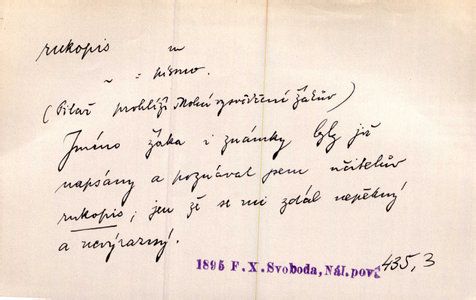 rukopis m
~ = písmo.
(Pilař prohlíží školní vysvědčení žákův)
Jméno žáka i známky byly již
napsány a poznával jsem učitelův
rukopis; jen že se mi zdál nepěkný
a nevýrazný.
1895 F. X. Svoboda, Nál. pov. 435,3